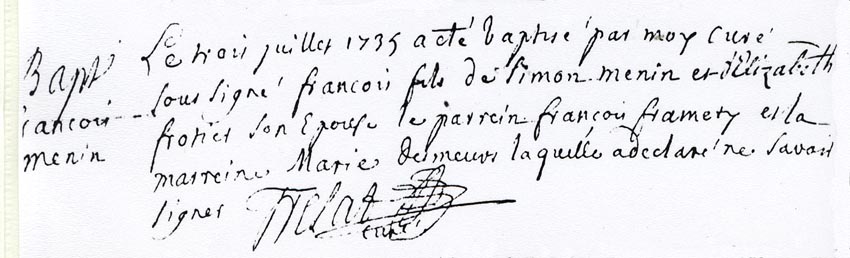 Bapt
francois
menin
Le trois juillet 1735 a eté baptisé par moy Curé
sous signé françois fils de Simon menin et d'Elizabeth
frotier son Epouse le parrein françois framery et la
marreine Marie desmeurs laquelle a declaré ne savoir
signer
curé